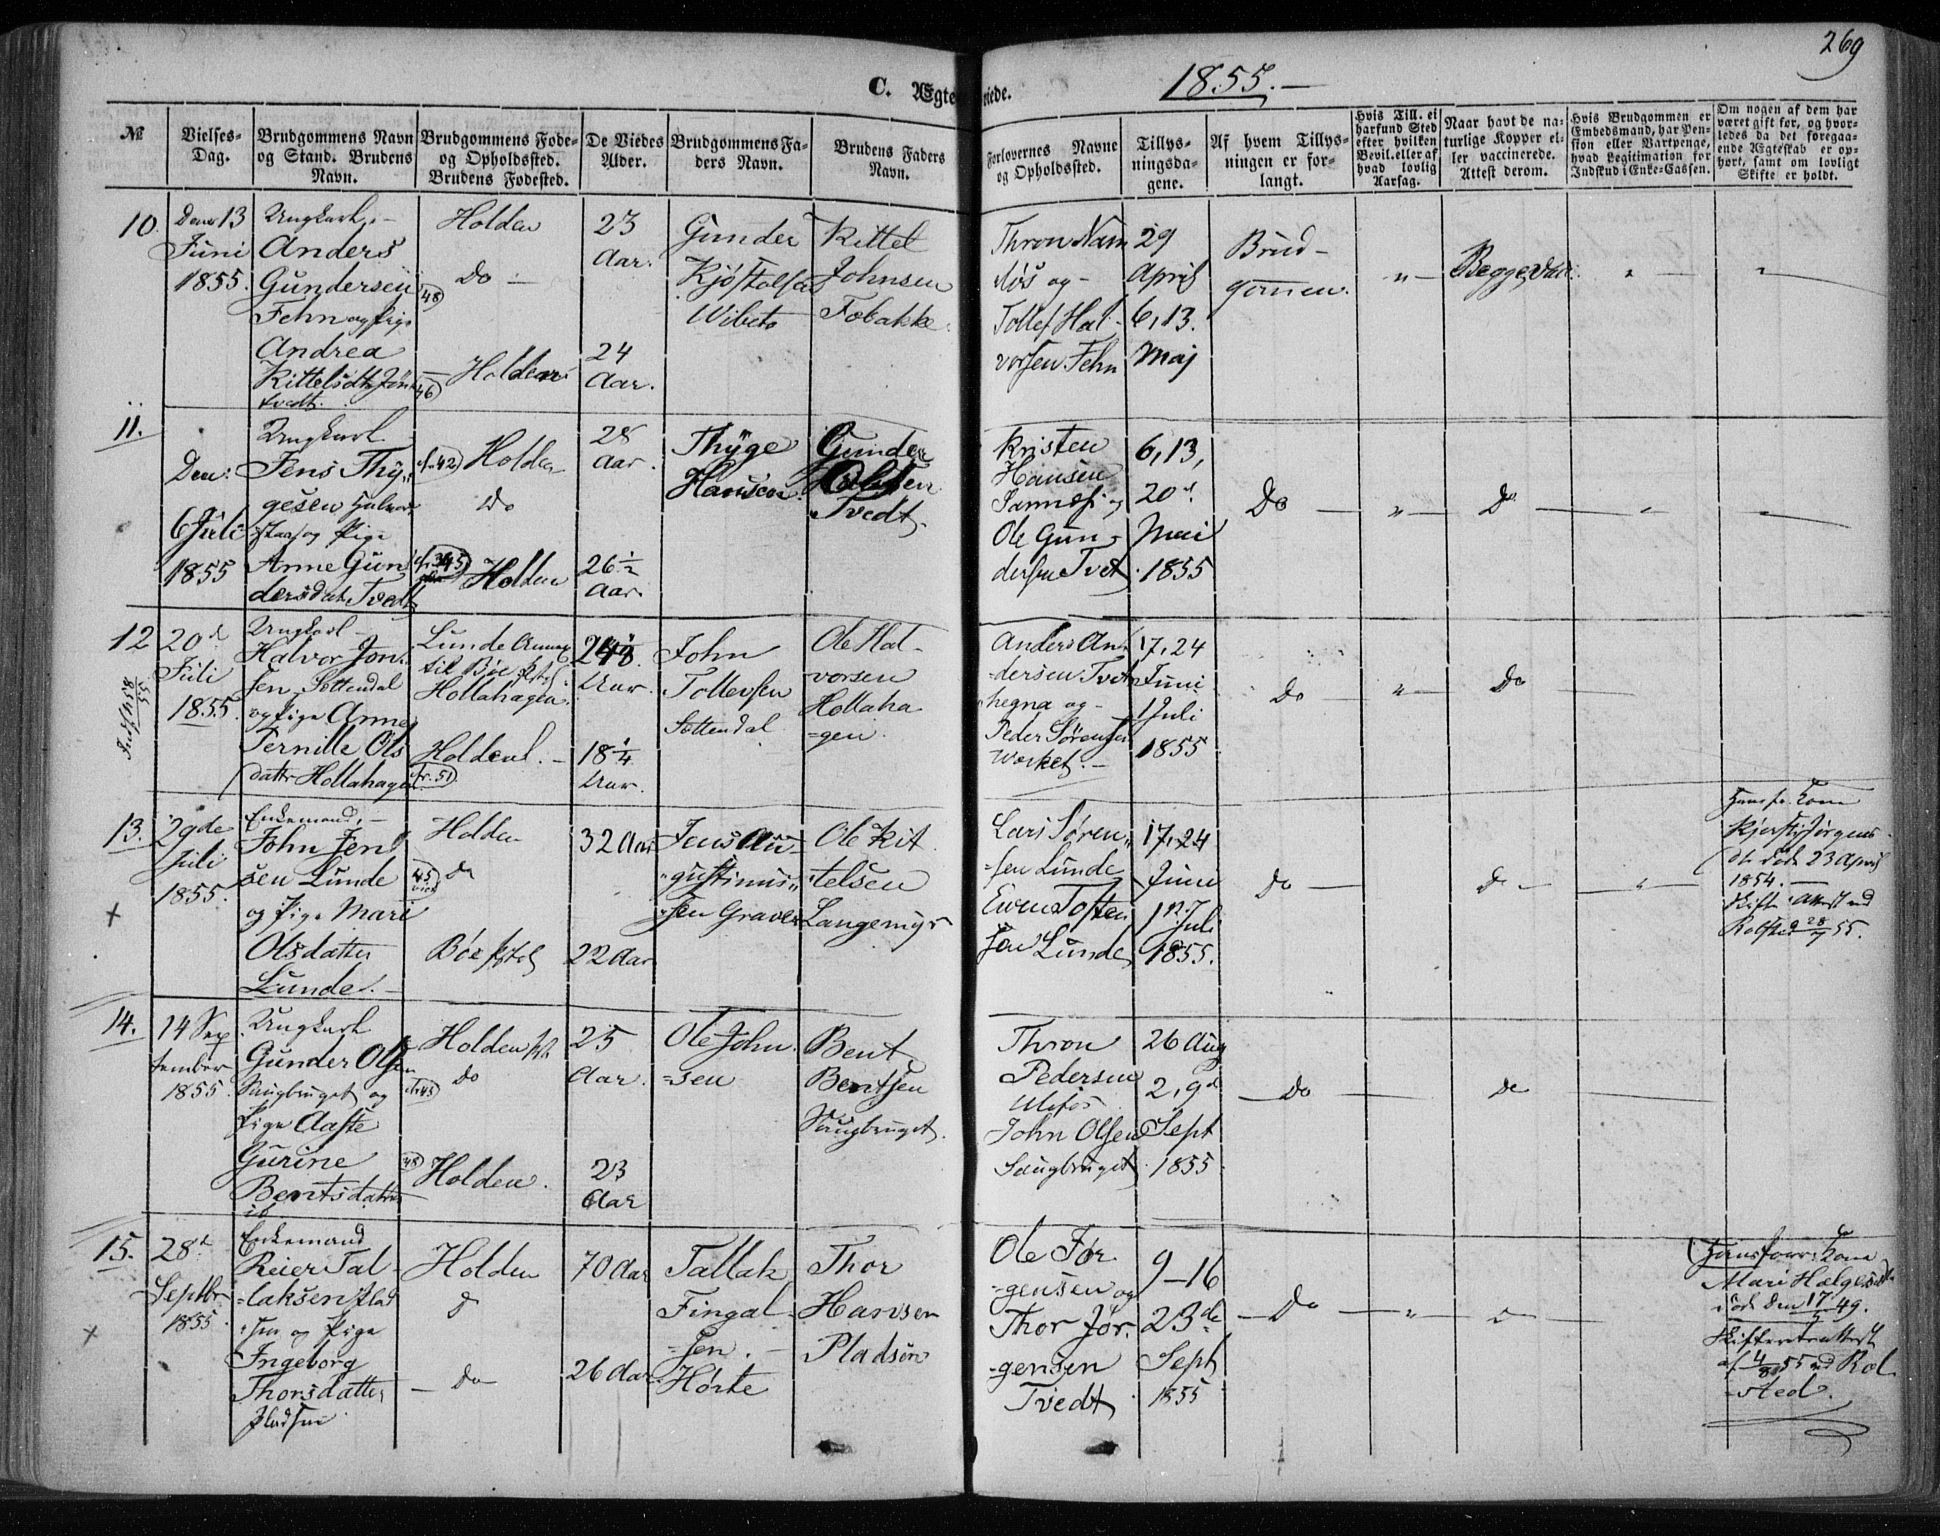 269
C. Ægteviede.
1855.
№
Vielses-
Dag.
Brudgommens Navn
og Stand. Brudens
Navn.
Brudgommens Føde-
og Opholdssted.
Brudens Fødested.
De Viedes
Alder.
Brudgommens Fa-
ders Navn.
Brudens Faders
Navn.
Forlovernes Navne
og Opholdssted.
Tillys-
ningsda-
gene.
Af hvem Tillys-
ningen er for-
langt.
Hvis Till. ei
har fund Sted
efter hvilken
Bevil. eller af
hvad lovlig
Aarsag.
Naar havt de na-
turlige Kopper el-
ler vaccinerede.
Attest derom.
Hvis Brudgommen er
Embedsmand, har Pen-
sion eller Vartpenge,
hvad Legitimation for
Indskud i Enke-Cassen.
Om nogen af dem har
været gift før, og hvor-
ledes da det foregaa-
ende Ægteskab er op-
hørt, samt om lovligt
Skifte er holdt.
10.
Den 13
Juni
1855.
Ungkarl
Anders
Gundersen
Fehn og Pige
Andrea
Kittelsdtr
tvedt.
Holden
Do
48
Holden
46
23
Aar.
24
Aar.
Gunder
Kjøstolsen
Wibeto
Kittel
Johnsen
Tobakke
Thron Nam
løs og
Tollef Hal
vorsen Fehn
29
April
6, 13.
Maj
Brud-
gommen.
"
Begge Vac.
"
"
11.
Den
6 Juli
1855
Ungkarl
Jens Thy-
gesen
og Pige
Anne Gun
dersdat. Tvedt
42
Holden
Do
45
Holden
28
Aar.
26½
Aar.
Thyge
Hansen
Gunder
Tvedt
Kristen
Hansen
og
Ole Gun-
dersen Tvet
6, 13,
20
Mai
1855
Do
"
Do
"
12
20
Juli
1855.
Ungkarl
Halvor Jon-
sen Søttendal
og Pige Anne
Pernille Ols
datter Hollahagen
Lunde Annex
til Bøe
Hollahagen
Holden
51
Aar.
18¼
Aar.
John
Tollevsen
Søttendal
Ole Hal-
vorsen
Hollaha
-gen
Anders An-
dersen Tvet
hegna og
Peder Sørensen
Værket.
17, 24
Juni
1 Juli
1855
Do
"
Do
13.
29de
Juli
1855.
Enkemand,
John Jen
sen Lunde
og Pige Mari
Olsdatter
Lunde.
Holden
45
do
Bøe
32 Aar
22 Aar
Jens Au-
gustinus-
sen Graver
Ole Kit
telsen
Langemyr
Lars Søren-
sen Lunde
Even Tosten
sen Lunde
17, 24
Juni
1
Juli
1855.
Do
Do
"
Kone
Kjersti Jørgens
død 23 April
1854.
28/7 55.
14.
14 Sep
tember
1855.
Ungkarl
Gunder Olsen
Saugbruget og
Pige Aaste
Gurine
Bentsdatter
ib
Holden
Do
45
48
Holden.
25
Aar.
23
Aar
Ole John
-sen
Bent
Bentsen
Saugbruget.
Thron
Pedersen
Ulefos
John Olsen
Saugbruget
26 Aug
2, 9
Sept
1855
Do
do
15.
28
Septbr
1855
Enkemand
Reier Tal-
laksen Plad
sen og Pige
Ingeborg
Thorsdatter
Pladsen
Holden
Do
70 Aar
26 Aar
Tallak
Fingal-
sen.
Hørte
Thor
Hansen
Pladsen
Ole Jør
-gensen og
Thor Jør-
gensen
Tvedt
9-16
23de
Sept
1855
Do
"
Kone
Mari Helgesdtr
død den 49.
55 ved Rol
-sted.